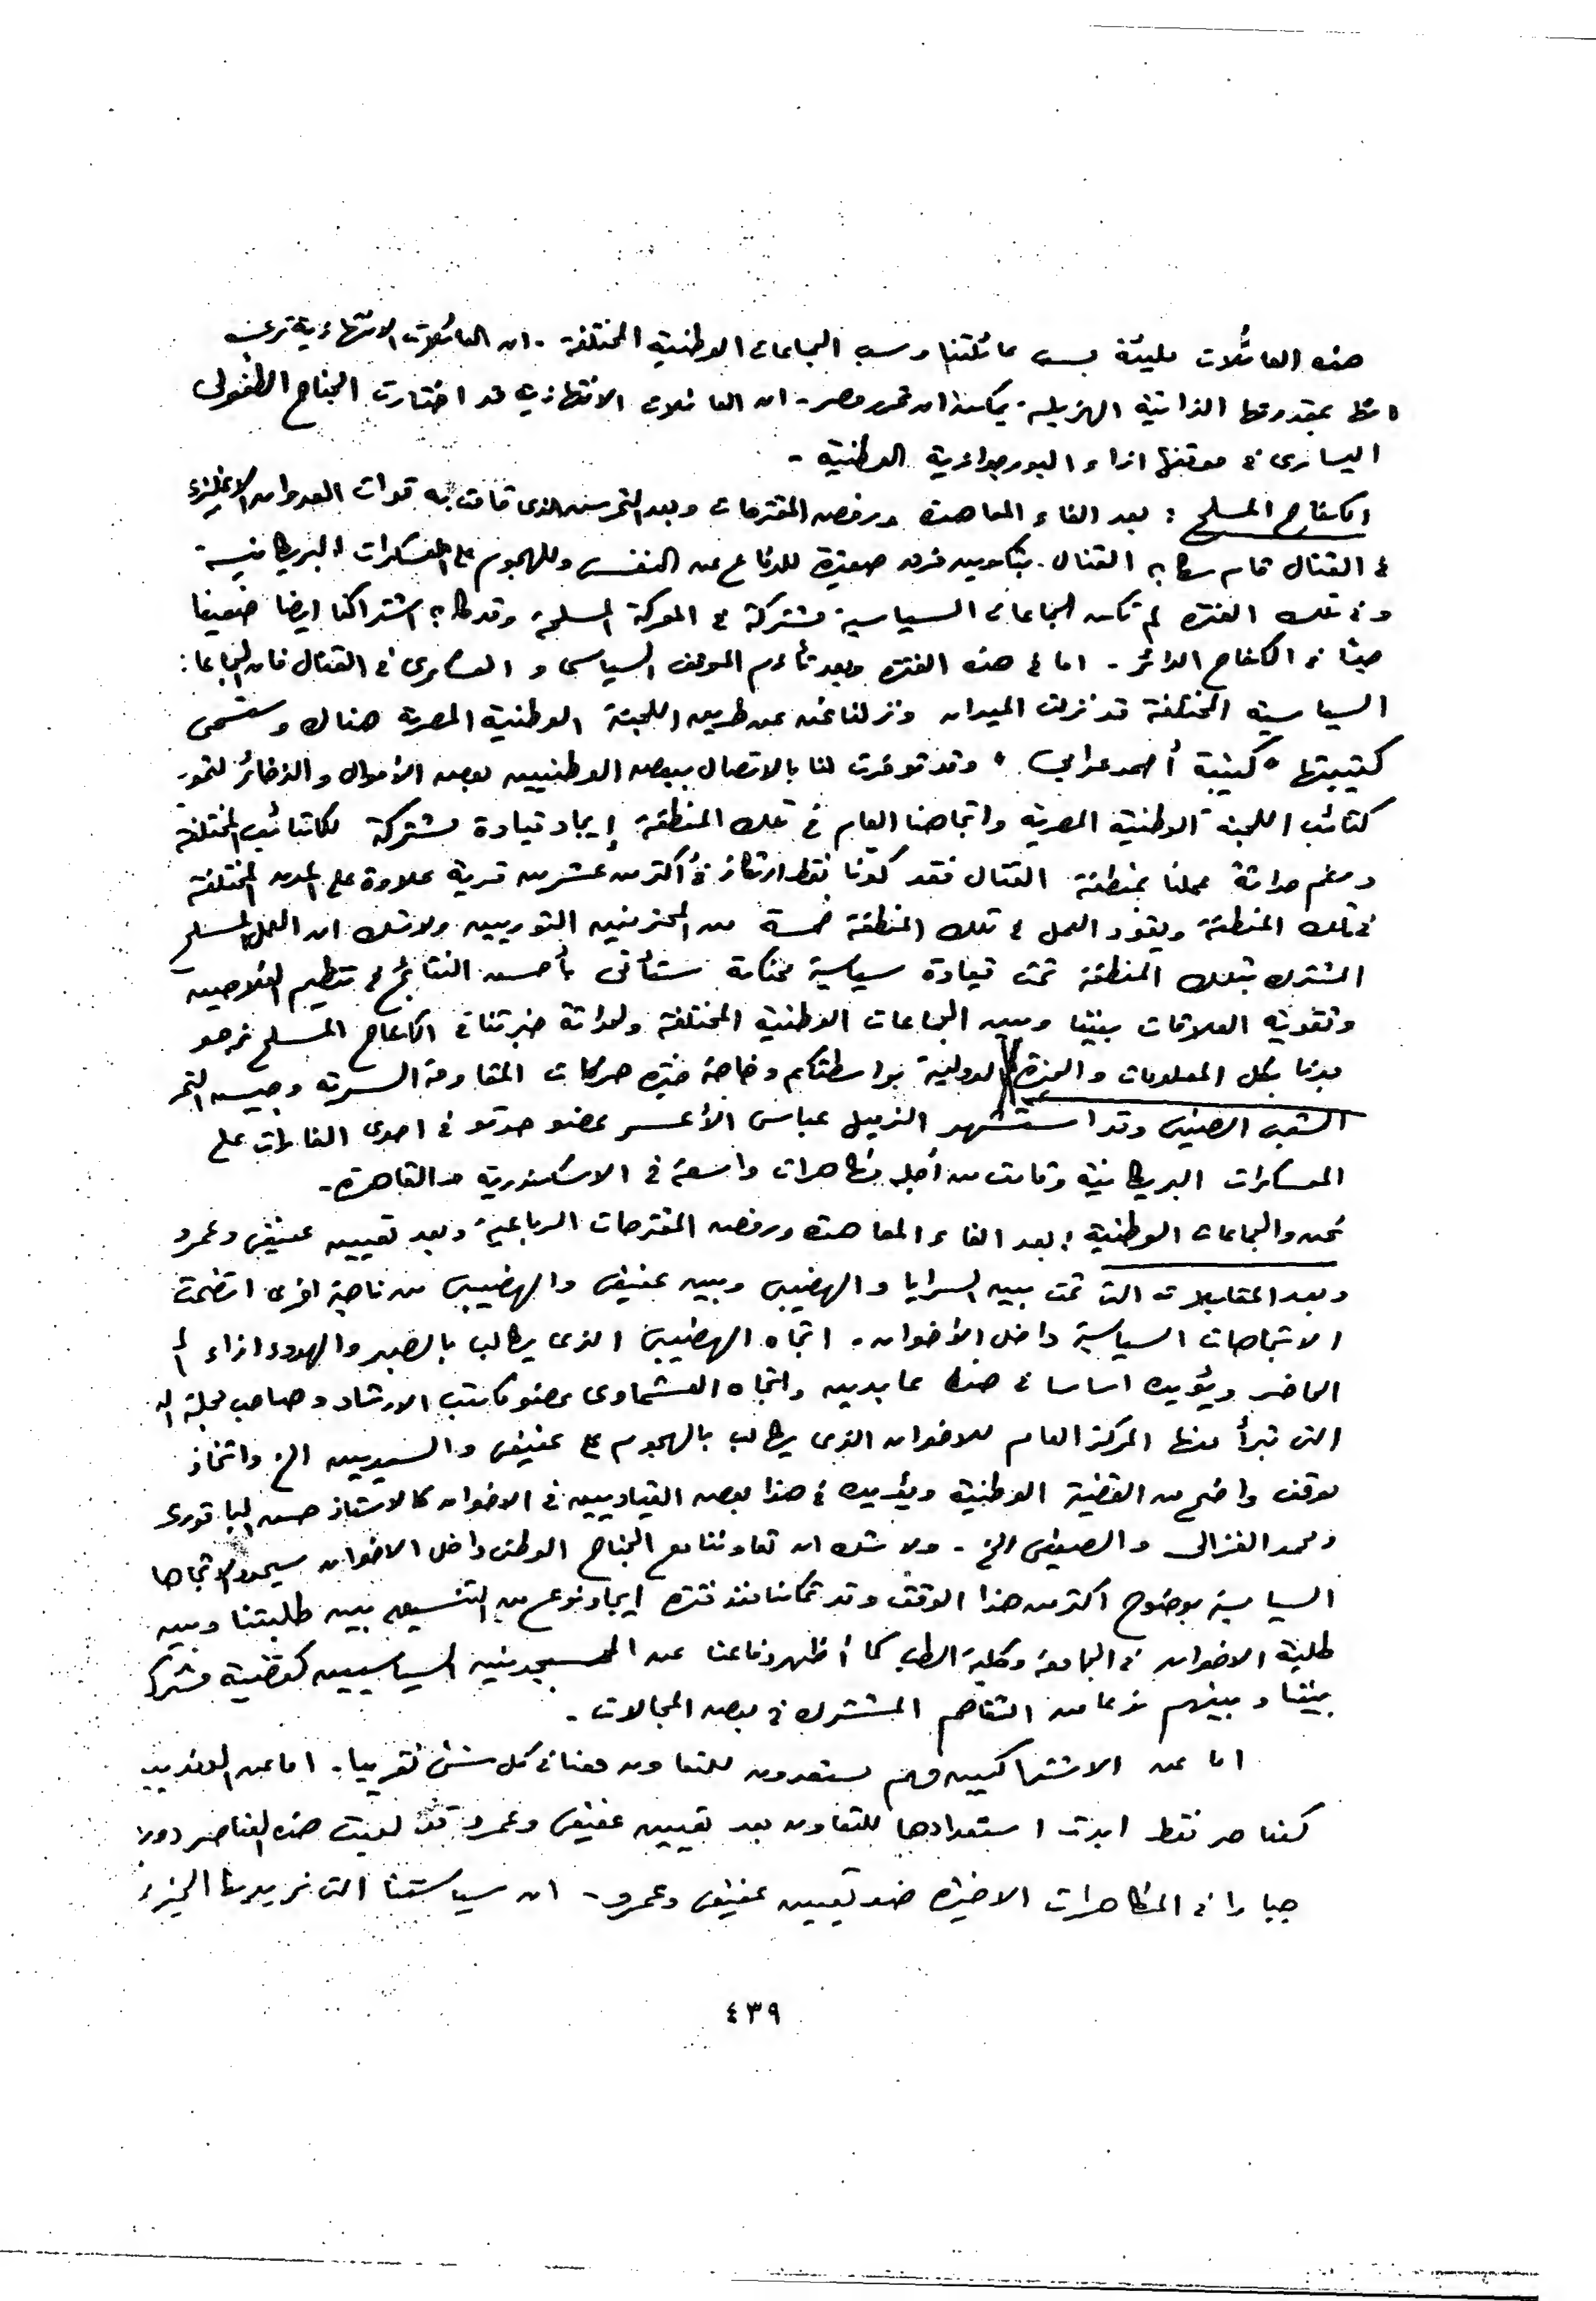 هذه العائلات مليئة بين عائلتنا وبين الجماعات الوطنية المختلفة - ان العائلات الانتهازية ترى
انها بمقدورها الذاتية الهزيلة يمكنها ان تحرر مصر - ان العائلات الانتهازية قد اختارت الجناح الطفولى
اليسارى فى موقفها ازاء البورجوازية الوطنية -
الكفاح المسلح : بعد الغاء المعاهدة ورفض المقترحات وبعد التحرش الذى قامت به قوات العدوان الانجليزى
فى القنال قام سكان القنال بتكوين فرق صغيرة للدفاع عن النفس وللهجوم على المعسكرات البريطانية
وفى تلك الفترة لم تكن الجماعات السياسية مشتركة فى المعركة المسلحة وقد كان اشتراكنا ايضا ضعيفا
فى الكفاح الدائر - اما فى هذه الفترة وبعد تأزم الموقف السياسى و العسكرى فى القنال فان الجماعات
السياسية المختلفة قد نزلت الميدان ونزلنا نحن عن طريق اللجنة الوطنية المصرية هناك وستسمى
كتيبتها " كتيبة أحمد عرابى " وقد توفرت لنا بالاتصال ببعض الوطنيين بعض الأموال والذخائر
كتائب اللجنة الوطنية المصرية واتجاهنا العام فى تلك المنطقة إيجاد قيادة مشتركة للكتائب المختلفة
ورغم حداثة عملنا بمنطقة القنال فقد كوّنا نقط ارتكاز فى أكثر من عشرين قرية علاوة على المدن المختلفة
فى تلك المنطقة ويقود العمل فى تلك المنطقة خمسة من المحترفين الثوريين ولا شك ان العمل المسلح
المشترك بتلك المنطقة تحت قيادة سياسية محنكة ستأتى بأحسن النتائج فى تنظيم الفلاحين
وتقوية العلاقات بيننا وبين الجماعات الوطنية المختلفة ولحداثة خبرتنا فى الكفاح المسلح نرجو
مدنا بكل المعلومات والخبرة الدولية بواسطتكم وخاصة خبرة حركات المقاومة السرية وجيش التحرير
الشعبى الصينى وقد استشهد الزميل عباس الأعسر عضو حدتو فى احدى الغارات على
المعسكرات البريطانية وقامت من أجله مظاهرات واسعة فى الاسكندرية والقاهرة -
نحن والجماعات الوطنية : بعد الغاء المعاهدة ورفض المقترحات الرباعية وبعد تعيين عفيفى وعمرو
وبعد المقابلات التى تمت بين السرايا والهضيبى وبين عفيفى والهضيبى من ناحية اخرى اتضحت
الاتجاهات السياسية داخل الأخوان . اتجاه الهضيبى الذى يطالب بالصبر والهدوء ازاء
الحاضر ويؤيده اساسا فى هذا عابدين واتجاه العشماوى عضو مكتب الارشاد وصاحب مجلة
التى تبرأ منها المركز العام للاخوان الذى يطالب بالهجوم على عفيفى والسعديين الخ واتخاذ
موقف واضح من القضية الوطنية ويؤيده فى هذا بعض القياديين فى الاخوان كالاستاذ حسن الباقورى
ومحمد الغزالى الخ - ولا شك ان تعاوننا مع الجناح الوطنى داخل الاخوان سيحدد الاتجاهات
السياسية بوضوح اكثر من هذا الوقت وقد تمكنا منذ فترة إيجاد نوع من التنسيق بين طلبتنا وبين
طلبة الاخوان فى الجامعة وكلية الطب كما أظهر دفاعنا عن المسجونين السياسيين كقضية مشتركة
بيننا وبينهم نوعا من التفاهم المشترك فى بعض المجالات -
اما عن الاشتراكيين فهم مستعدون للتعاون معنا فى كل شئ تقريبا . اما عن الوفديين
كعناصر فقط ابدت استعدادها للتعاون بعد تعيين عفيفى وعمرو وقد لعبت هذه العناصر دورا
جبارا فى المظاهرات الاخيرة ضد تعيين عفيفى وعمرو - ان سياستنا التى نريد
٤٣٩